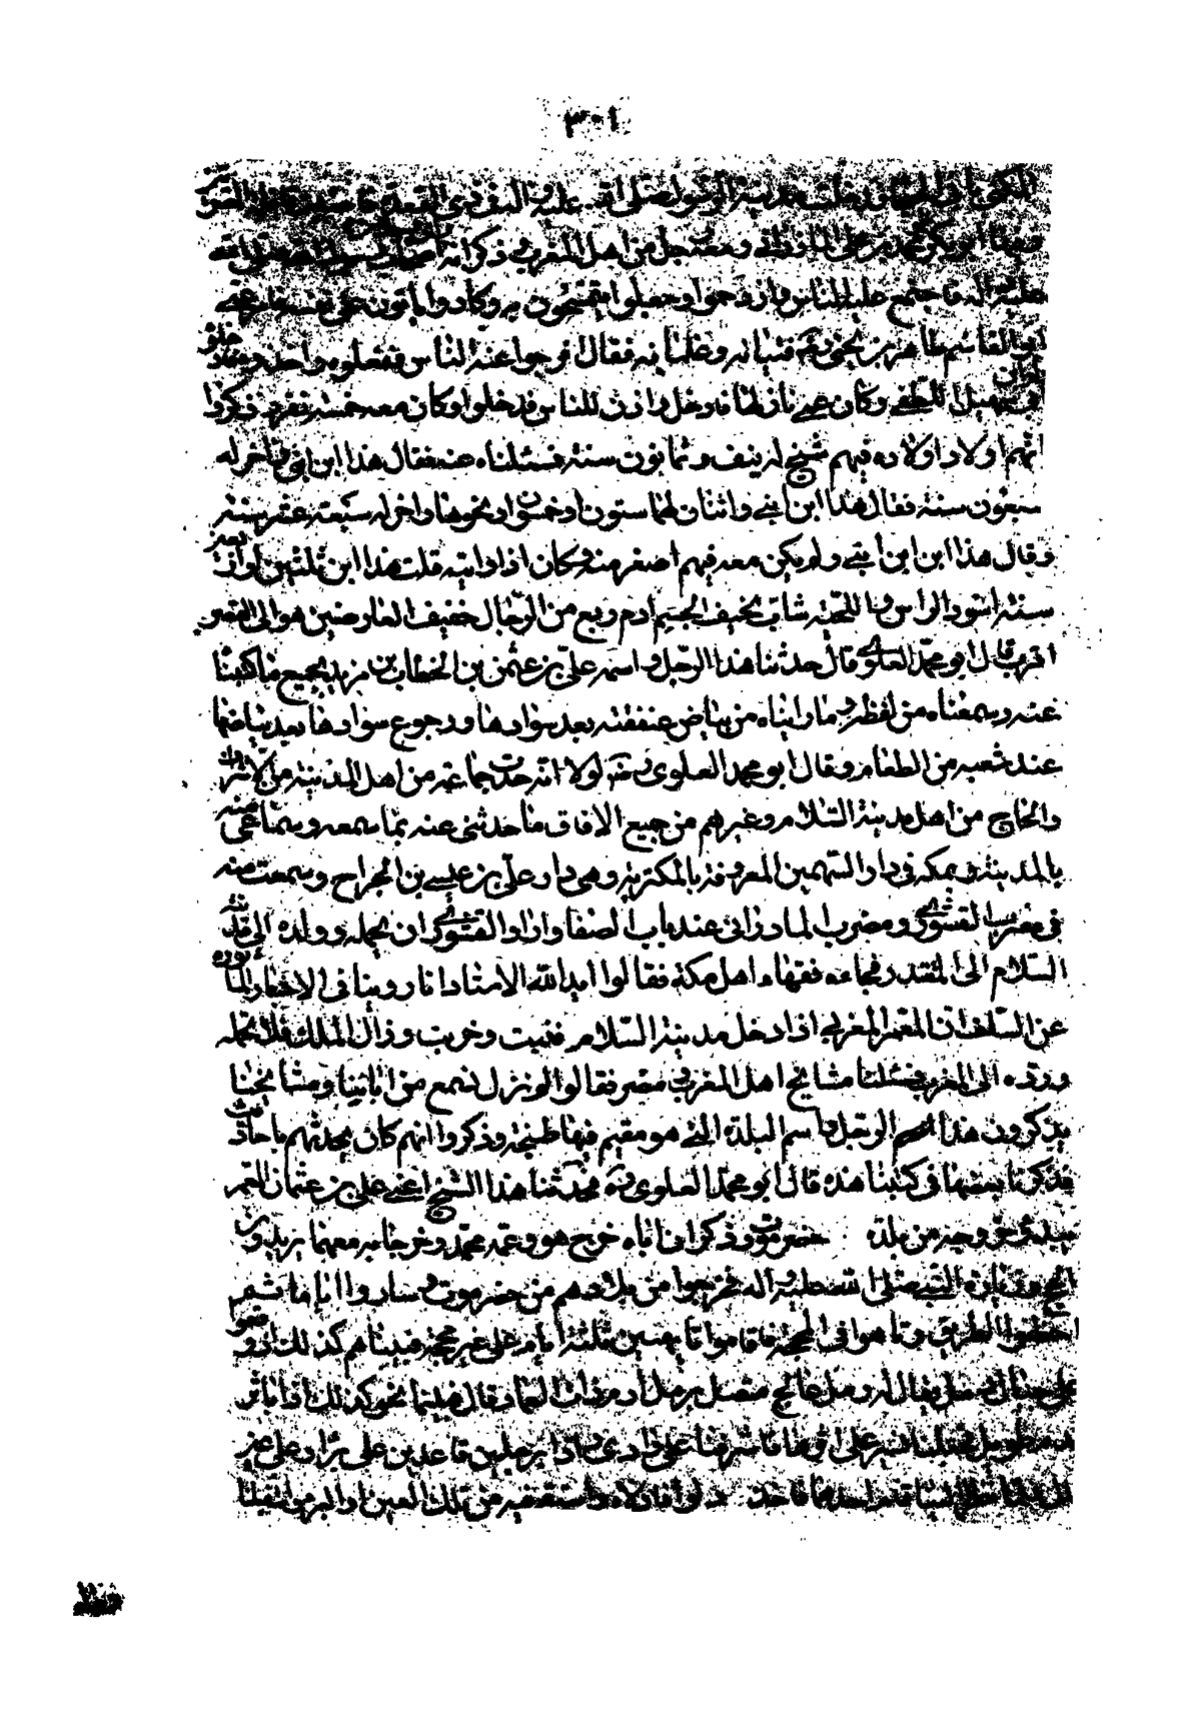 ٣٠١
مدينة الرسول صلى الله عليه
رجل من اهل المغرب وذكر انه
عليه واله فاجتمع عليه الناس وازدحموا وجعلوا يتمسحون به وكادوا ياتون على نفسه فامر عمى
ابو القاسم طاهر بن يحيى رضه فتيانه وغلمانه فقال افرجوا عنه الناس ففعلوه واخذوه فادخلوه
الطفي وكان عمى نازلها فادخل واذن للناس فدخلوا وكان معه خمسة نفر ذكروا
انهم اولاد اولاده فيهم شيخ له نيف وثمانون سنة فسئلناه عنه فقال هذا ابن ابنى واخر له
سبعون سنة فقال هذا ابن ابنى واثنان لهما ستون او خمسون او نحوها واخر له سبعة عشر سنة
وقال هذا ابن ابن ابنى ولم يكن معه فيهم اصغر منه وكان اذا رايته قلت هذا ابن ثلثين او اربعين
سنة اسود الراس واللحية شاب نحيف الجسم ادم ربع من الرجال خفيف العارضين هو الى القصر
اقرب قال ابو محمد العلوى قال حدثنا هذا الرجل واسمه على بن عثمن بن الخطاب بن مزيد بجميع ماكتبنا
عنه وسمعناه من لفظه وما رايناه من بياض عنفقته بعد سوادها ورجوع سوادها بعد بياضها
عند شعبه من الطعام وقال ابو محمد العلوى رضه لولا انه حدث جماعة من اهل المدينة من الاشراف
والحاج من اهل مدينة السلام وغيرهم من جميع الافاق ما حدثنى عنه بما سمعه وسماعى منه
بالمدينة وبمكه فى دار السهمين المعروفة بالمكتريه وهى دار على بن عيسى بن الجراح وسمعت منه
فى مضرب القشورى ومضرب المادرانى عند باب الصفا واراد القشورى ان يحمله وولده الى مدينة
السلام الى المقتدر فجاءه فقهاء اهل مكة فقالوا ايد الله الاستاد انا روينا فى الاخبار الماثوره
عن السلف ان المعمر المغربى اذا دخل مدينة السلام فنيت وخربت وزال الملك فلا تحمله
ورده الى المغرب فسئلنا مشايخ اهل المغرب ومصر فقالوا لم نزل نسمع من ابائنا ومشايخنا
يذكرون هذا الرجل واسم البلدة التى هو مقيم فيها طنجة وذكروا انهم كان يحدثهم باحاديث
قد ذكرنا بعضها فى كتبنا هذه قال ابو محمد العلوى رضه فحدثنا هذا الشيخ اعنى على بن عثمان المعمر
ببدو خروجه من بلدة حضرموت وذكر ان اباه خرج هو وعمه محمد وخرجا به معهما يريدون
الحج وزيارة النبى صلى الله عليه واله فخرجوا من بلادهم من حضرموت وساروا اياما ثم
اخطؤا الطريق وتاهوا فى المحجة فاقاموا تايهين ثلثة ايام على غير محجة فبيناهم كذلك اذ وقعوا
على جبال رمل يقال له رمل عالج متصل برمل ارم ذات العماد قال فبينما نحن كذلك اذا باثر
قدم طويل فجعلنا نسير على اثرها فاشرفنا على وادى واذا برجلين قاعدين على بئر او على عين
قال فلما نظرا الينا قام احدهما فاخذ دلوا فادلاه واستقى فيه من تلك العين او البئر واستقبلنا